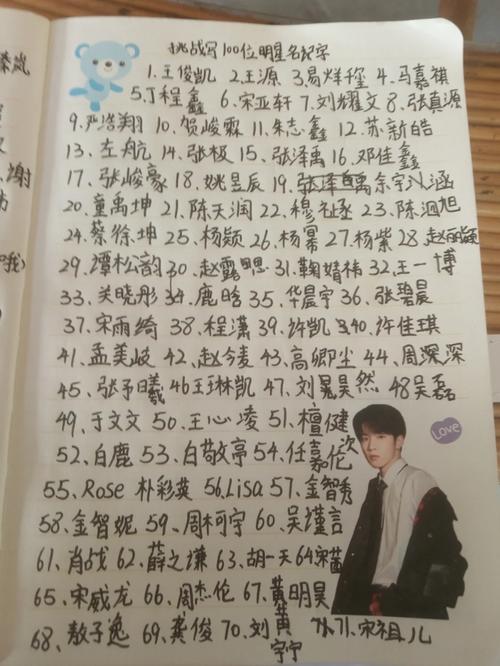 挑战写100位明星名字
1.王俊凯 2.王源 3.易烊千玺 4.马嘉祺
5.丁程鑫 6.宋亚轩 7.刘耀文 8.张真源
9.严浩翔 10.贺峻霖 11.朱志鑫 12.苏新皓
13、左航 14、张极 15、张泽禹 16、邓佳鑫
17、张峻豪 18、姚昱辰 19、余宇涵
20、童禹坤 21、陈天润 22、穆祉丞 23、陈泗旭
24、蔡徐坤 25、杨颖 26、杨幂 27、杨紫 28、赵丽颖
29、谭松韵 30、赵露思 31、鞠婧祎 32、王一博
33、关晓彤 34、鹿晗 35、华晨宇 36、张碧晨
37、宋雨绮 38、程潇 39、许凯 40、许佳琪
41、孟美岐 42、赵今麦 43、高卿尘 44、周深深
45、张予曦 46、王琳凯 47、刘昊然 48、吴磊
49、于文文 50、王心凌 51、檀健次
52、白鹿 53、白敬亭 54、任嘉伦
55、Rose 朴彩英 56、Lisa 57、金智秀
58、金智妮 59、周柯宇 60、吴谨言
61、肖战 62、薛之谦 63、胡一天 64、宋茜
65、宋威龙 66、周杰伦 67、黄明昊
68、敖子逸 69、龚俊 70、刘
71、宋祖儿
Love
谢